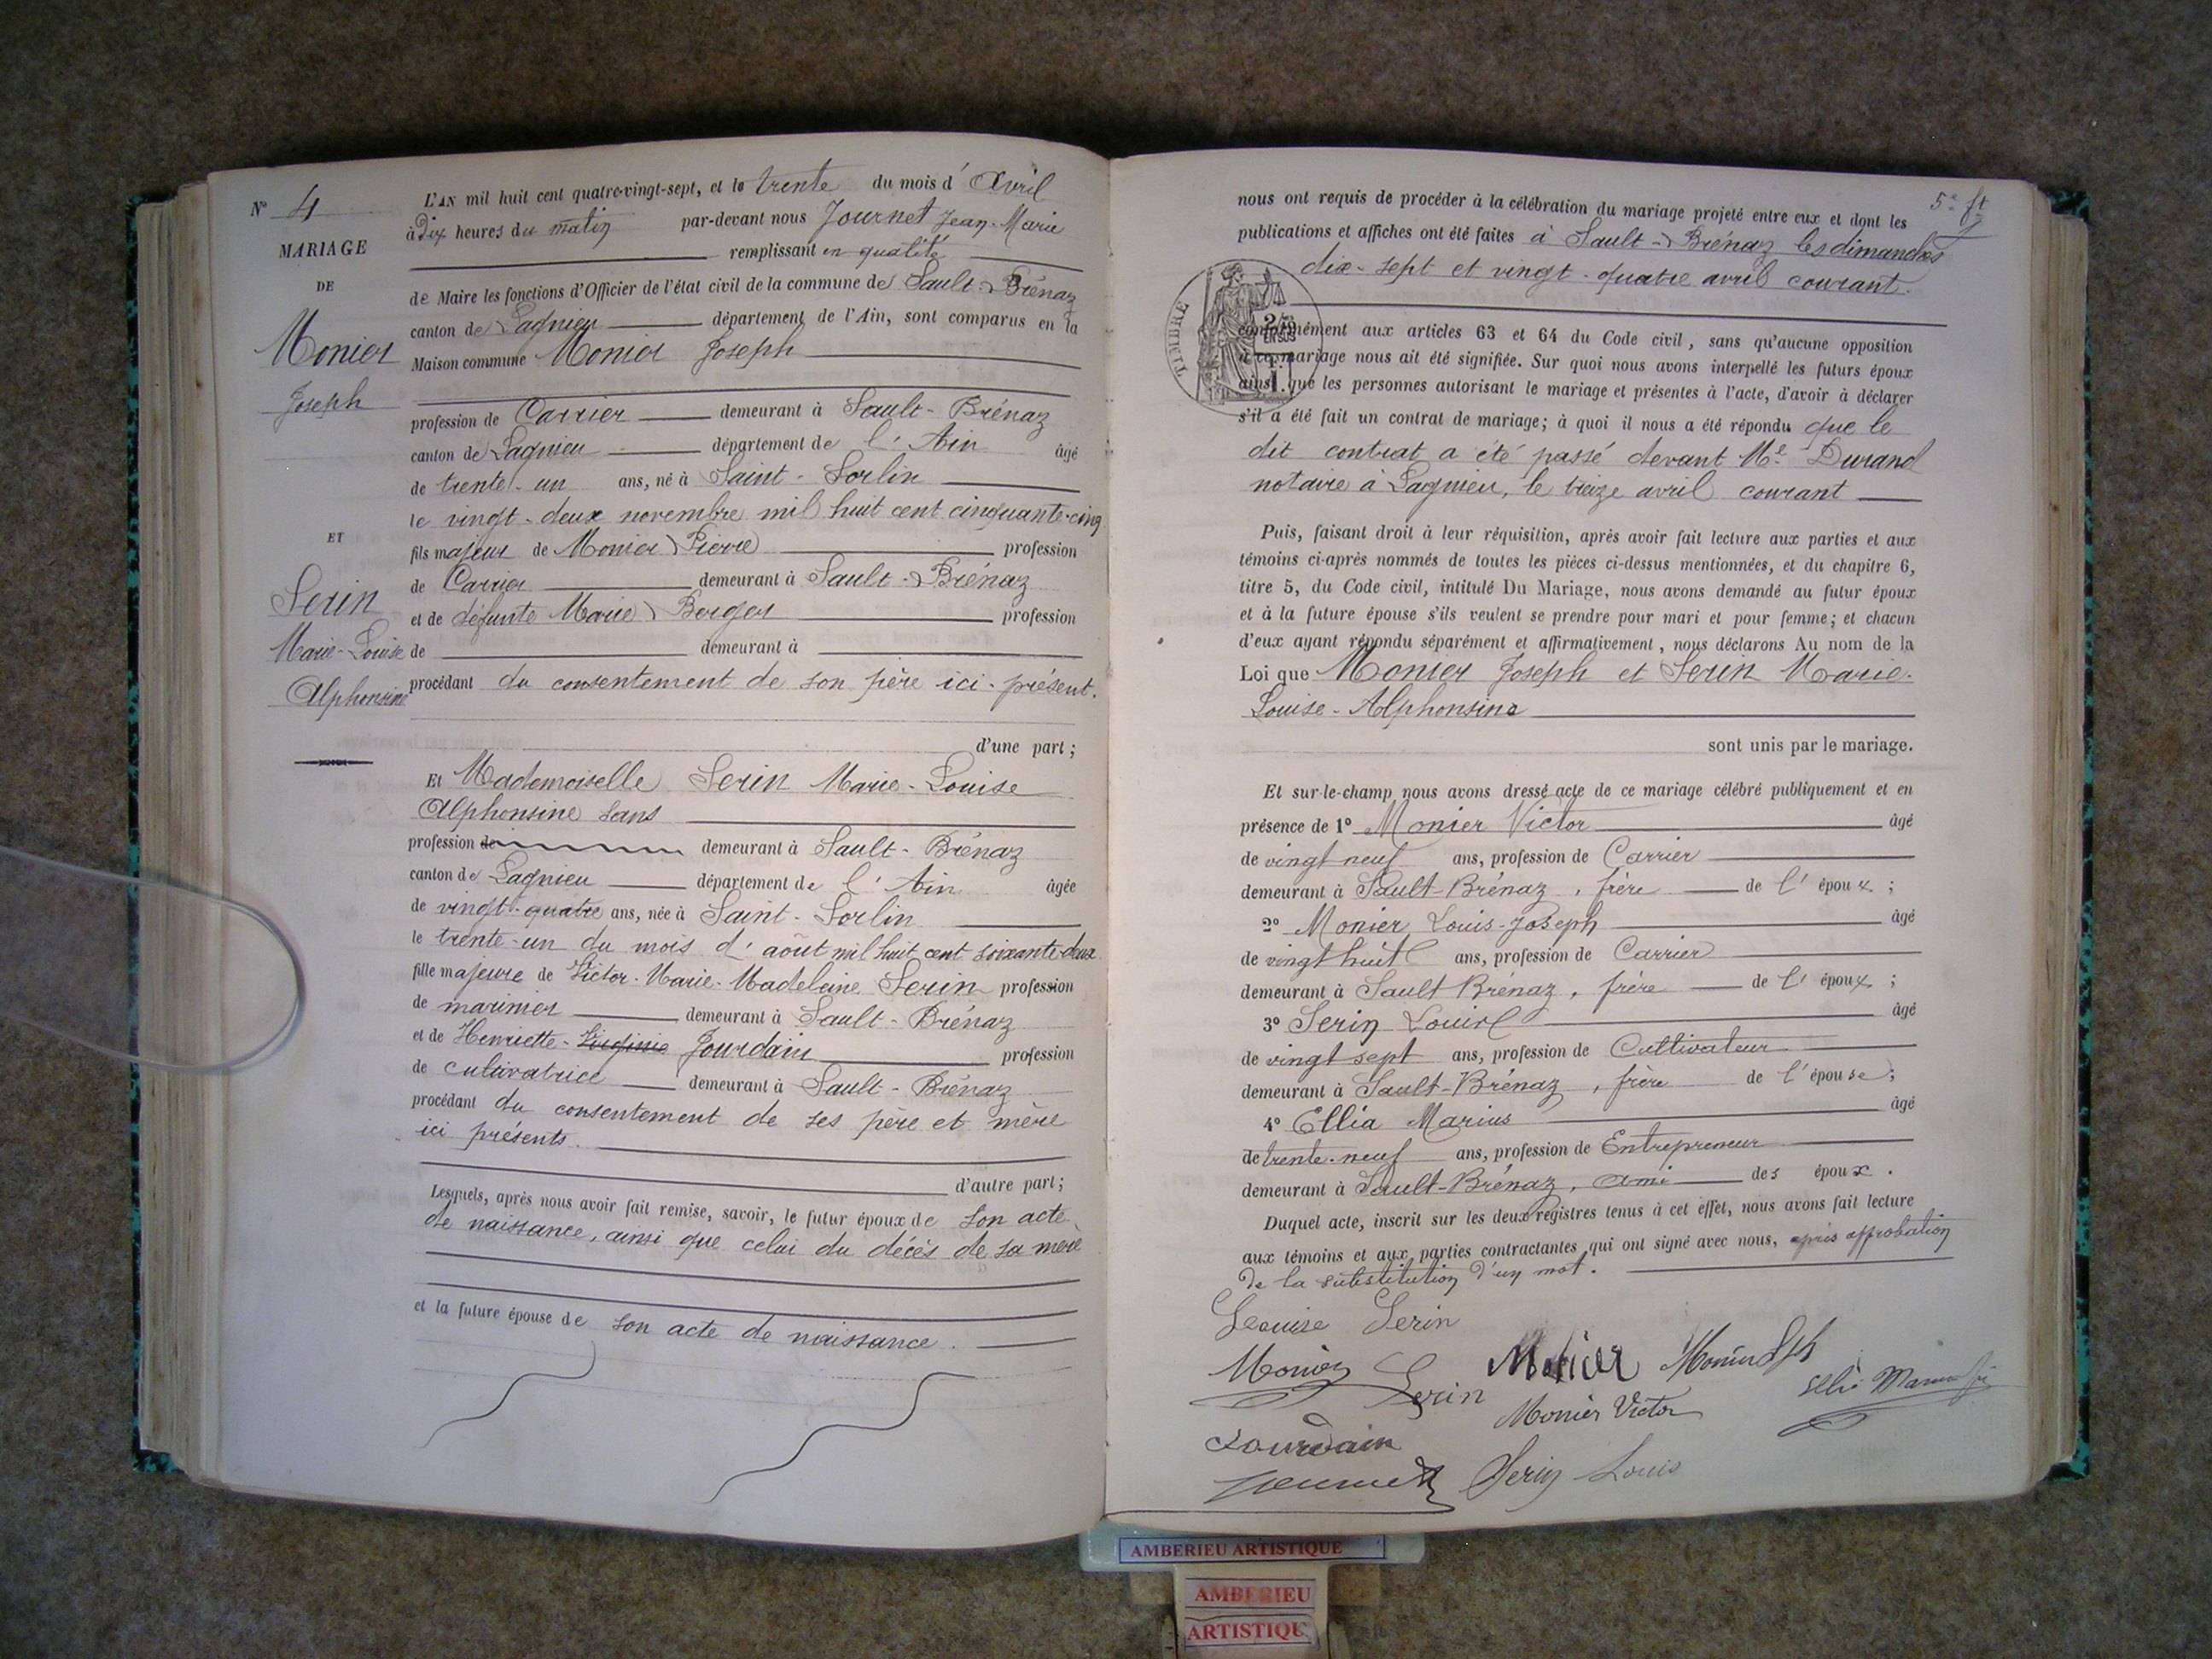 N° 4
MARIAGE
DE
Monier
Joseph
ET
Serin
Marie-Louise
Alphonsine
L'AN mil huit cent quatre-vingt-sept, et le trente du mois d'Avril
à Dix heures du matin par-devant nous Journet Jean-Marie
remplissant en qualité
de Maire les fonctions d'Officier de l'état civil de la commune de Sault-Brénaz
canton de Lagnieu département de l'Ain, sont comparus en la
Maison commune Monier Joseph
profession de Carrier demeurant à Sault-Brénaz
canton de Lagnieu département de l'Ain âgé
de trente-un ans, né à Saint-Sorlin
le vingt-deux novembre mil huit cent cinquante-cinq
fils majeur de Monier Pierre profession
de Carrier demeurant à Sault-Brénaz
et de défunte Marie Berger profession
de demeurant à
procédant du consentement de son père ici-présent.
d'une part;
Et Mademoiselle Serin Marie-Louise
Alphonsine sans
profession de demeurant à Sault-Brénaz
canton de Lagnieu département de l'Ain âgée
de vingt-quatre ans, née à Saint-Sorlin
le trente-un du mois d'août mil huit cent soixante-deux
fille majeure de Victor-Marie-Madeleine Serin profession
de marinier demeurant à Sault-Brénaz
et de Henriette-Virginie Jourdain profession
de cultivatrice demeurant à Sault-Brénaz
procédant du consentement de ses père et mère
ici présents.
d'autre part;
Lesquels, après nous avoir fait remise, savoir, le futur époux de son acte
de naissance, ainsi que celui du décès de sa mère
et la future épouse de son acte de naissance.
5e ft
nous ont requis de procéder à la célébration du mariage projeté entre eux et dont les
publications et affiches ont été faites à Sault-Brénaz les dimanches
dix-sept et vingt-quatre avril courant.
TIMBRE
2/10
EN SUS
conformément aux articles 63 et 64 du Code civil, sans qu'aucune opposition
à ce mariage nous ait été signifiée. Sur quoi nous avons interpellé les futurs époux
ainsi que les personnes autorisant le mariage et présentes à l'acte, d'avoir à déclarer
s'il a été fait un contrat de mariage; à quoi il nous a été répondu que le
dit contrat a été passé devant Me Durand
notaire à Lagnieu, le treize avril courant
Puis, faisant droit à leur réquisition, après avoir fait lecture aux parties et aux
témoins ci-après nommés de toutes les pièces ci-dessus mentionnées, et du chapitre 6,
titre 5, du Code civil, intitulé Du Mariage, nous avons demandé au futur époux
et à la future épouse s'ils veulent se prendre pour mari et pour femme; et chacun
d'eux ayant répondu séparément et affirmativement, nous déclarons Au nom de la
Loi que Monier Joseph et Serin Marie-
Louise-Alphonsine
sont unis par le mariage.
Et sur-le-champ nous avons dressé acte de ce mariage célébré publiquement et en
présence de 1° Monier Victor âgé
de vingt neuf ans, profession de Carrier
demeurant à Sault-Brénaz, frère de l'époux;
2° Monier Louis-Joseph âgé
de vingt huit ans, profession de Carrier
demeurant à Sault Brénaz, frère de l'époux;
3° Serin Louis âgé
de vingt sept ans, profession de Cultivateur
demeurant à Sault-Brénaz, frère de l'épouse;
4° Ellia Marius âgé
de trente-neuf ans, profession de Entrepreneur
demeurant à Sault-Brénaz, ami des époux.
Duquel acte, inscrit sur les deux registres tenus à cet effet, nous avons fait lecture
aux témoins et aux parties contractantes qui ont signé avec nous, après approbation
de la substitution d'un mot.
Louise Serin
Monier Serin Monier Monier
Monier Victor
Jourdain
Journet Serin Louis
AMBERIEU ARTISTIQUE
AMBERIEU
ARTISTIQUE